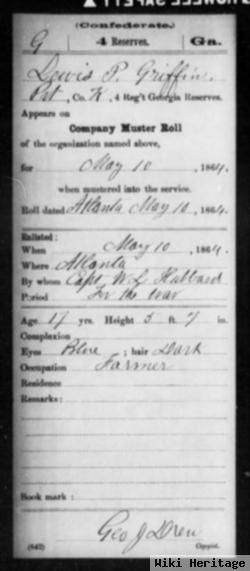 (Confederate.)
G 4 Reserves. Ga.
Lewis P. Griffin.
Pvt, Co. K, 4 Reg't Georgia Reserves.
Appears on
Company Muster Roll
of the organization named above,
for May 10, 1864,
when mustered into the service.
Roll dated Atlanta May 10, 1864.
Enlisted:
When May 10, 1864.
Where Atlanta
By whom Capt W L Hubbard
Period For the war
Age 17 yrs. Height 5 ft 7 in.
Complexion
Eyes Blue ; hair Dark
Occupation Farmer
Residence
Remarks:
Book mark:
Geo J Drew
(642) Copyist.
Wiki Heritage